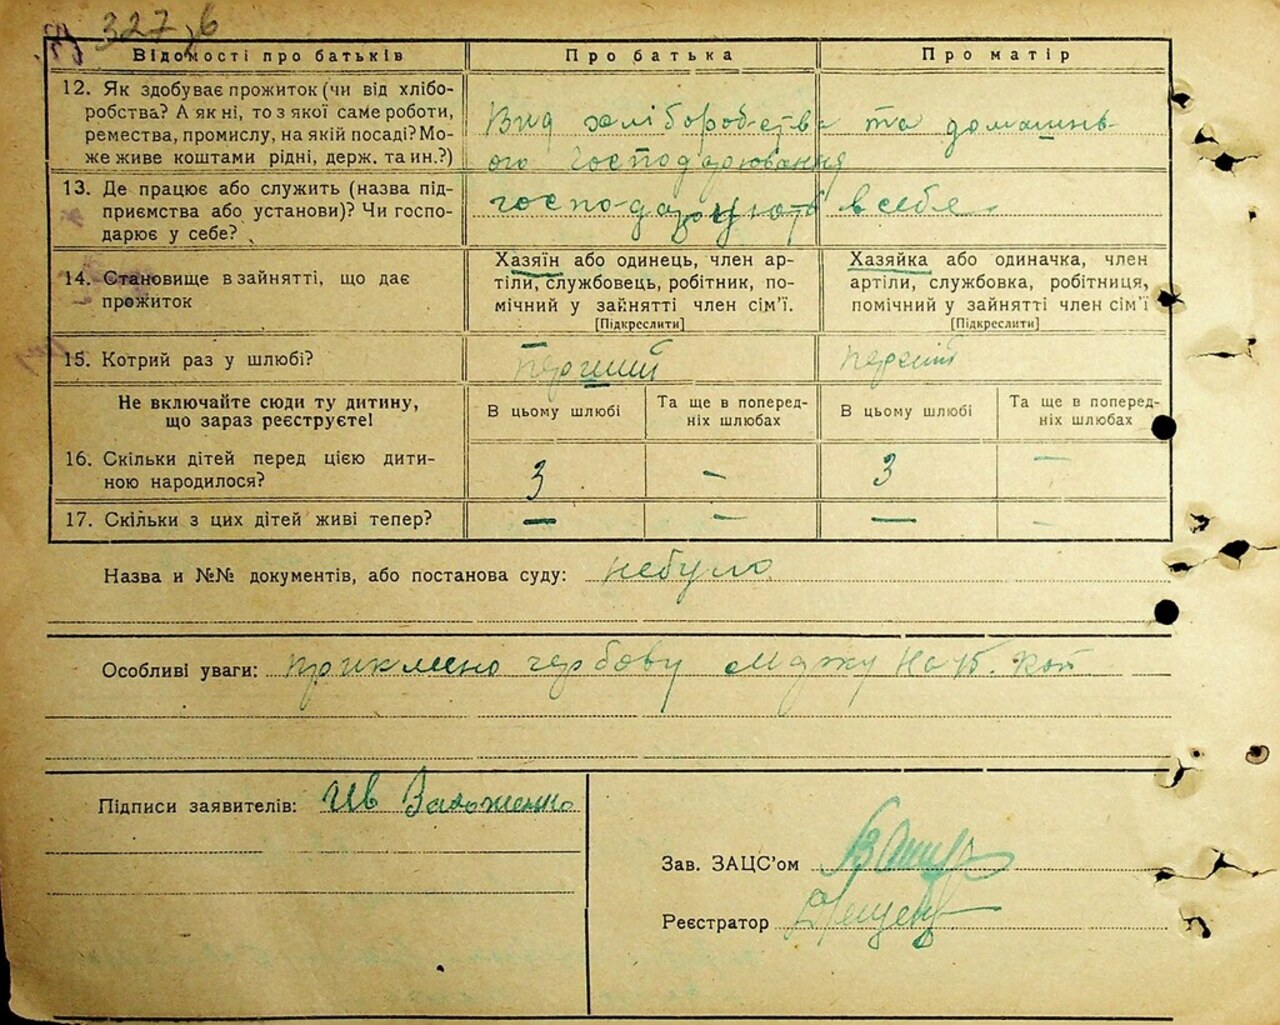 327 зв
Відомості про батьків Про батька Про матір
12. Як здобуває прожиток (чи від хлібо-
робства? А як ні, то з якої саме роботи,
ремества, промислу, на якій посаді? Мо-
же живе коштами рідні, держ. та ин.?)
Вид хліборобства та домашнь-
ого господарювання
13. Де працює або служить (назва під-
приємства або установи)? Чи госпо-
дарює у себе?
господарюють в себе
14. Становище в занятті, що дає
прожиток
Хазяїн або одинець, член ар-
тіли, службовець, робітник, по-
мічний у зайнятті член сім'ї.
[Підкреслити]
Хазяйка або одиначка, член
артіли, службовка, робітниця,
помічний у зайнятті член сім'ї
[Підкреслити]
15. Котрий раз у шлюбі?
Перший перший
Не включайте сюди ту дитину,
що зараз реєструєте!
В цьому шлюбі
Та ще в поперед-
ніх шлюбах
В цьому шлюбі
Та ще в поперед-
ніх шлюбах
16. Скільки дітей перед цією дити-
ною народилося?
3 – 3 –
17. Скільки з цих дітей живі тепер?
– – – –
Назва и №№ документів, або постанова суду: небуло
Особливі уваги: приклено гербову на 15. коп
Підписи заявителів: Ив
Зав. ЗАЦС'ом
Реєстратор